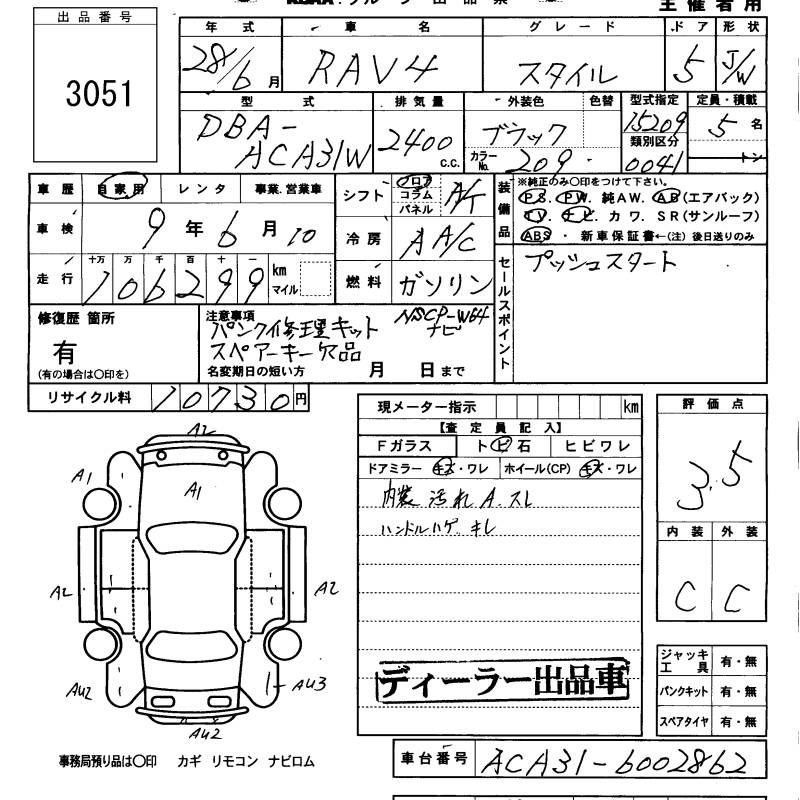 主催者用
出品番号
3051
年式 車名 グレード ドア 形状
28/6月 RAV4 スタイル 5 J/W
型式 排気量 外装色 色替 型式指定 定員・積載
DBA-ACA31W 2400c.c. ブラック 15209 5名
カラーNo. 209 類別区分 0041 トン
車歴 自家用 レンタ 事業.営業車
車検 9年6月10
走行 十万 万 千 百 十 一
106299 km マイル
シフト フロア コラム パネル A/T
冷房 AA/C
燃料 ガソリン
装備品
※純正のみ○印をつけて下さい。
PS. PW. 純AW. AB(エアバック)
TV. ナビ カワ. SR(サンルーフ)
ABS・新車保証書←(注)後日送りのみ
セールスポイント
プッシュスタート
修復歴 箇所
有
(有の場合は○印を)
注意事項
パンク修理キット NSCP-W64
ナビ
スペアーキー欠品
名変期日の短い方 月 日まで
リサイクル料 10730円
現メーター指示 km
【査定員記入】
Fガラス トビ石 ヒビワレ
ドアミラー キズ・ワレ ホイール(CP) キズ・ワレ
内装 汚れ A. スレ
ハンドルハゲ キレ
ディーラー出品車
評価点
3.5
内装 外装
C C
ジャッキ工具 有・無
パンクキット 有・無
スペアタイヤ 有・無
A2
A1
A1
A2
A2
AU2
AU3
AU2
事務局預り品は○印 カギ リモコン ナビロム
車台番号 ACA31-6002862